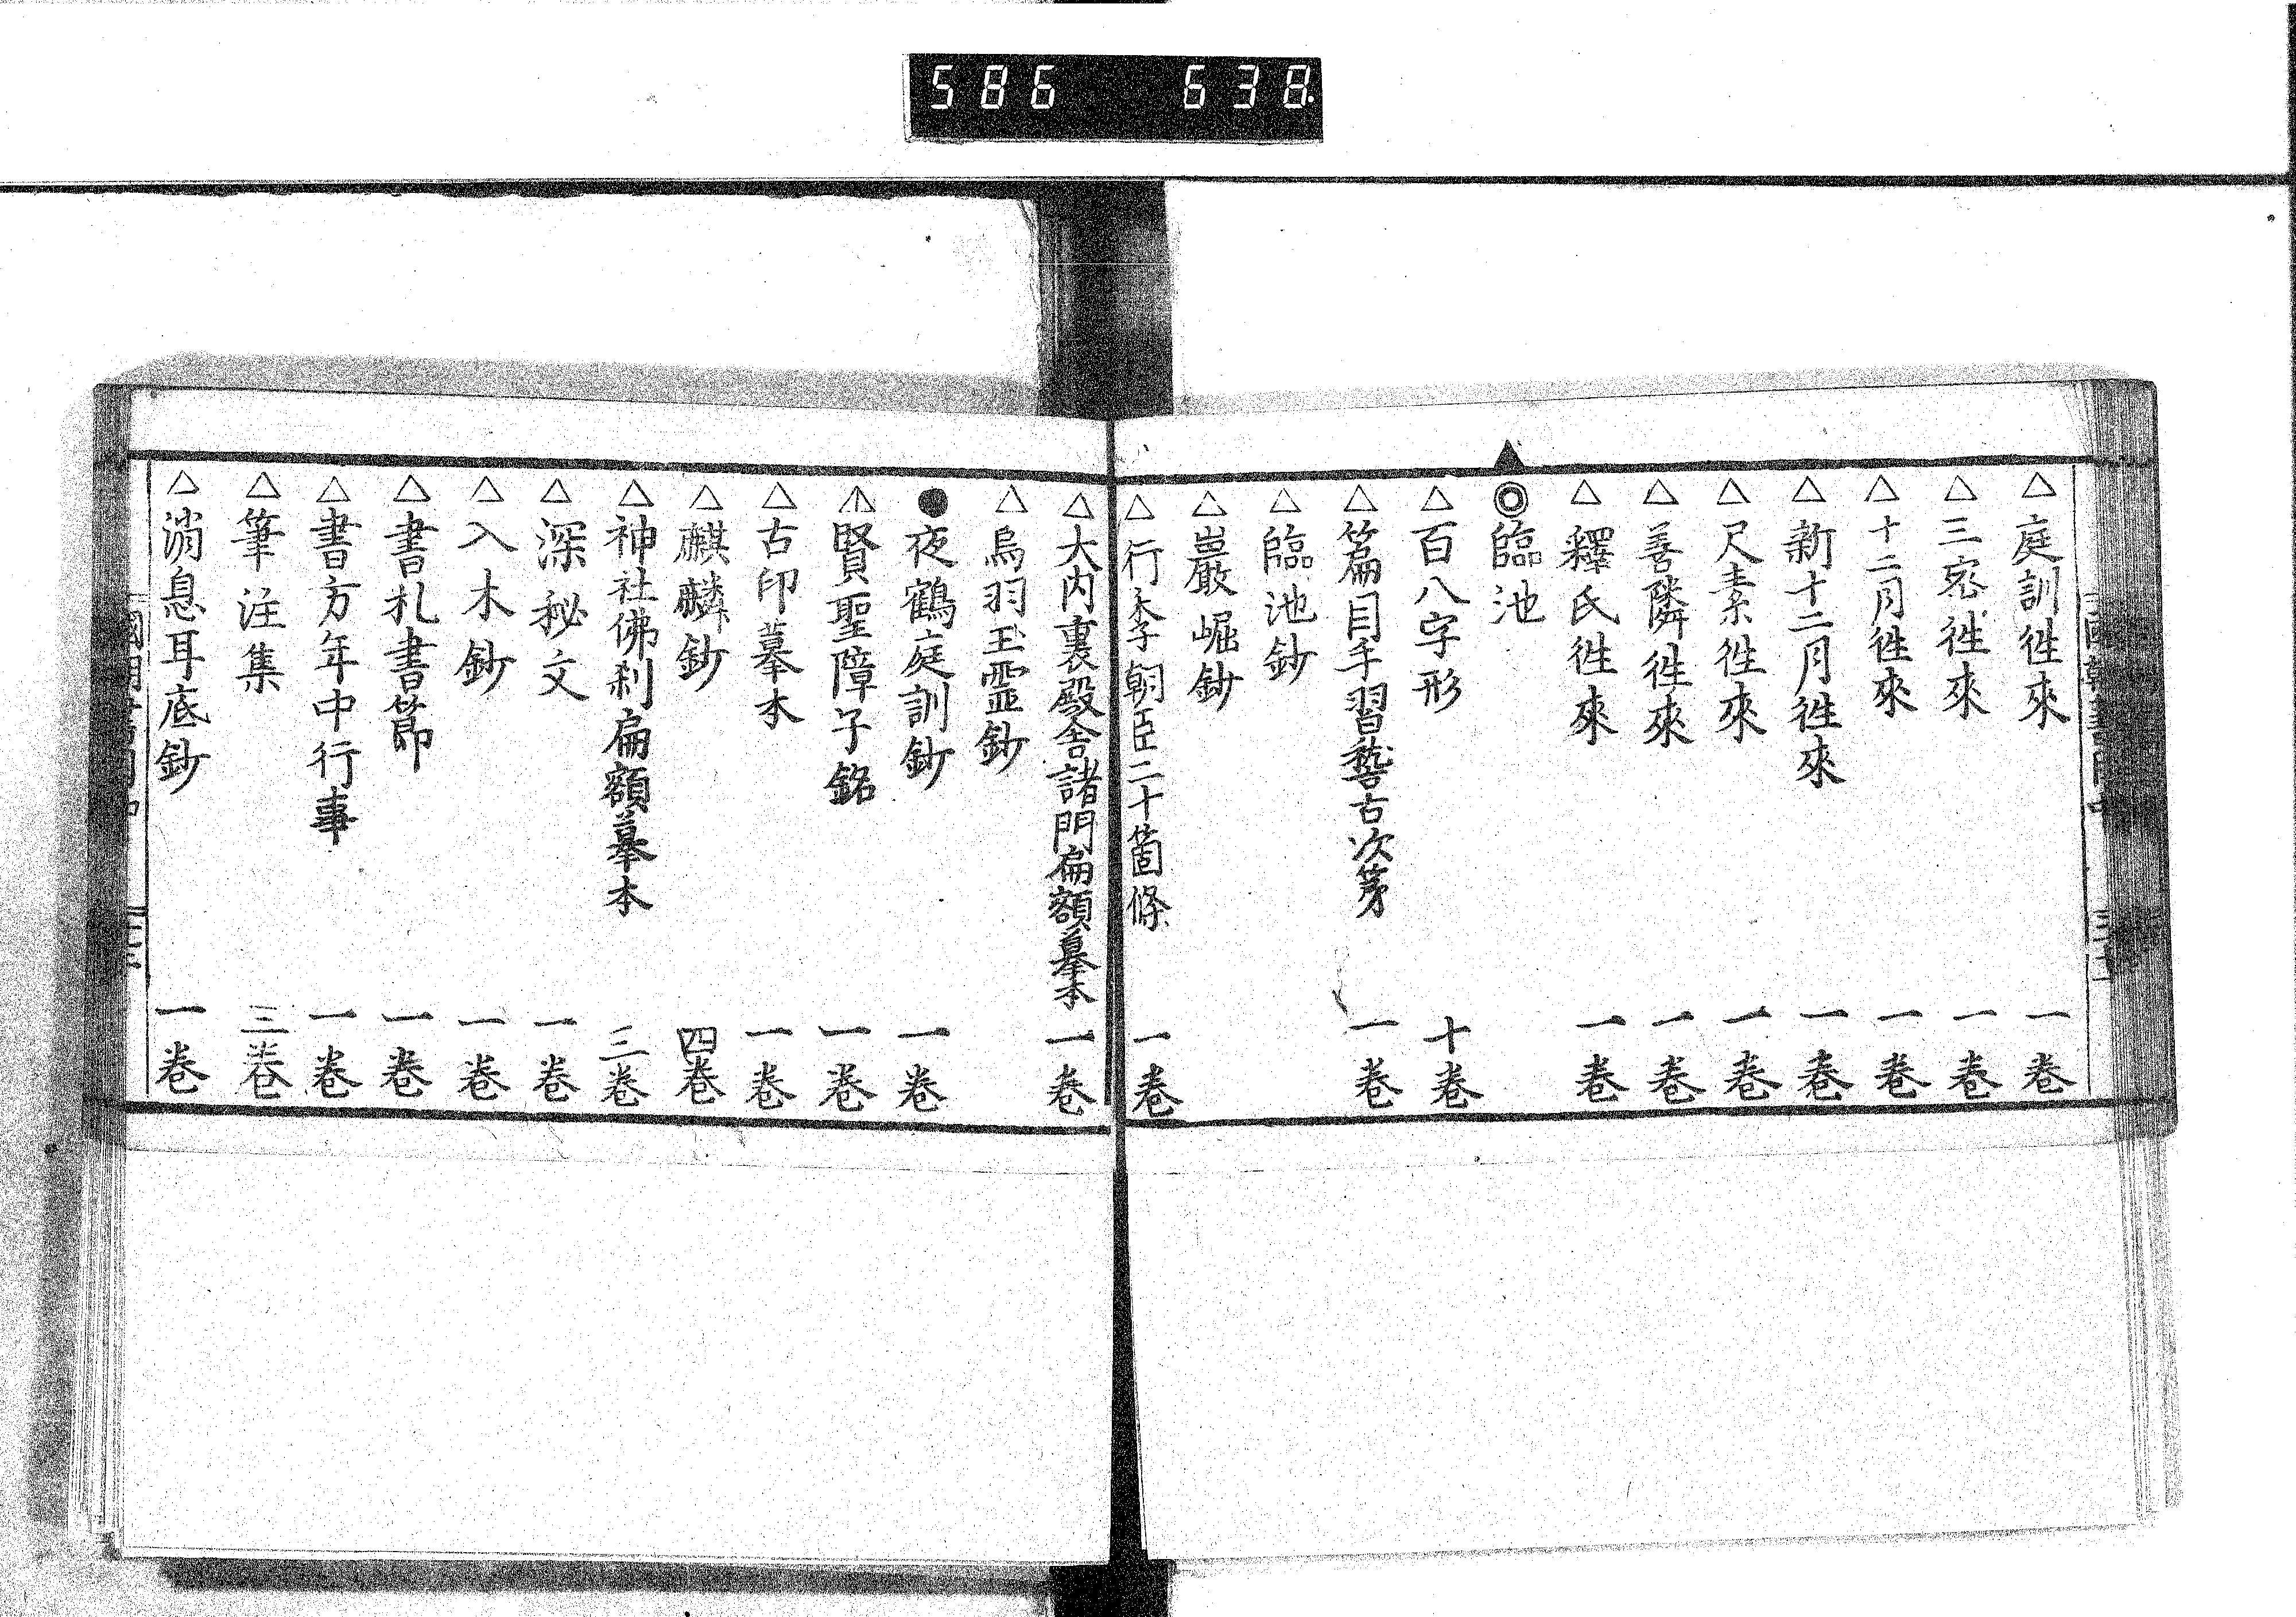 586 638
△庭訓徃來 一卷
△三宻徃來 一卷
△十二月徃來 一卷
△新十二月徃來 一卷
△尺素徃來 一卷
△善隣徃來 一卷
△釋氏徃來 一卷
▲◎臨池
△百八字形 十卷
△篇目手習稽古次第 一卷
△臨池鈔
△巖崛鈔
△行季朝臣二十箇條 一卷
△大内裏殿舍諸門扁額摹本 一卷
△烏羽玉霊鈔
●夜鶴庭訓鈔 一卷
△賢聖障子銘 一卷
△古印摹本 一卷
△麒麟鈔 四卷
△神社佛刹扁額摹本 三卷
△深秘文 一卷
△入木鈔 一卷
△書札書節 一卷
△書方年中行事 一卷
△筆注集 三卷
△消息耳底鈔 一卷